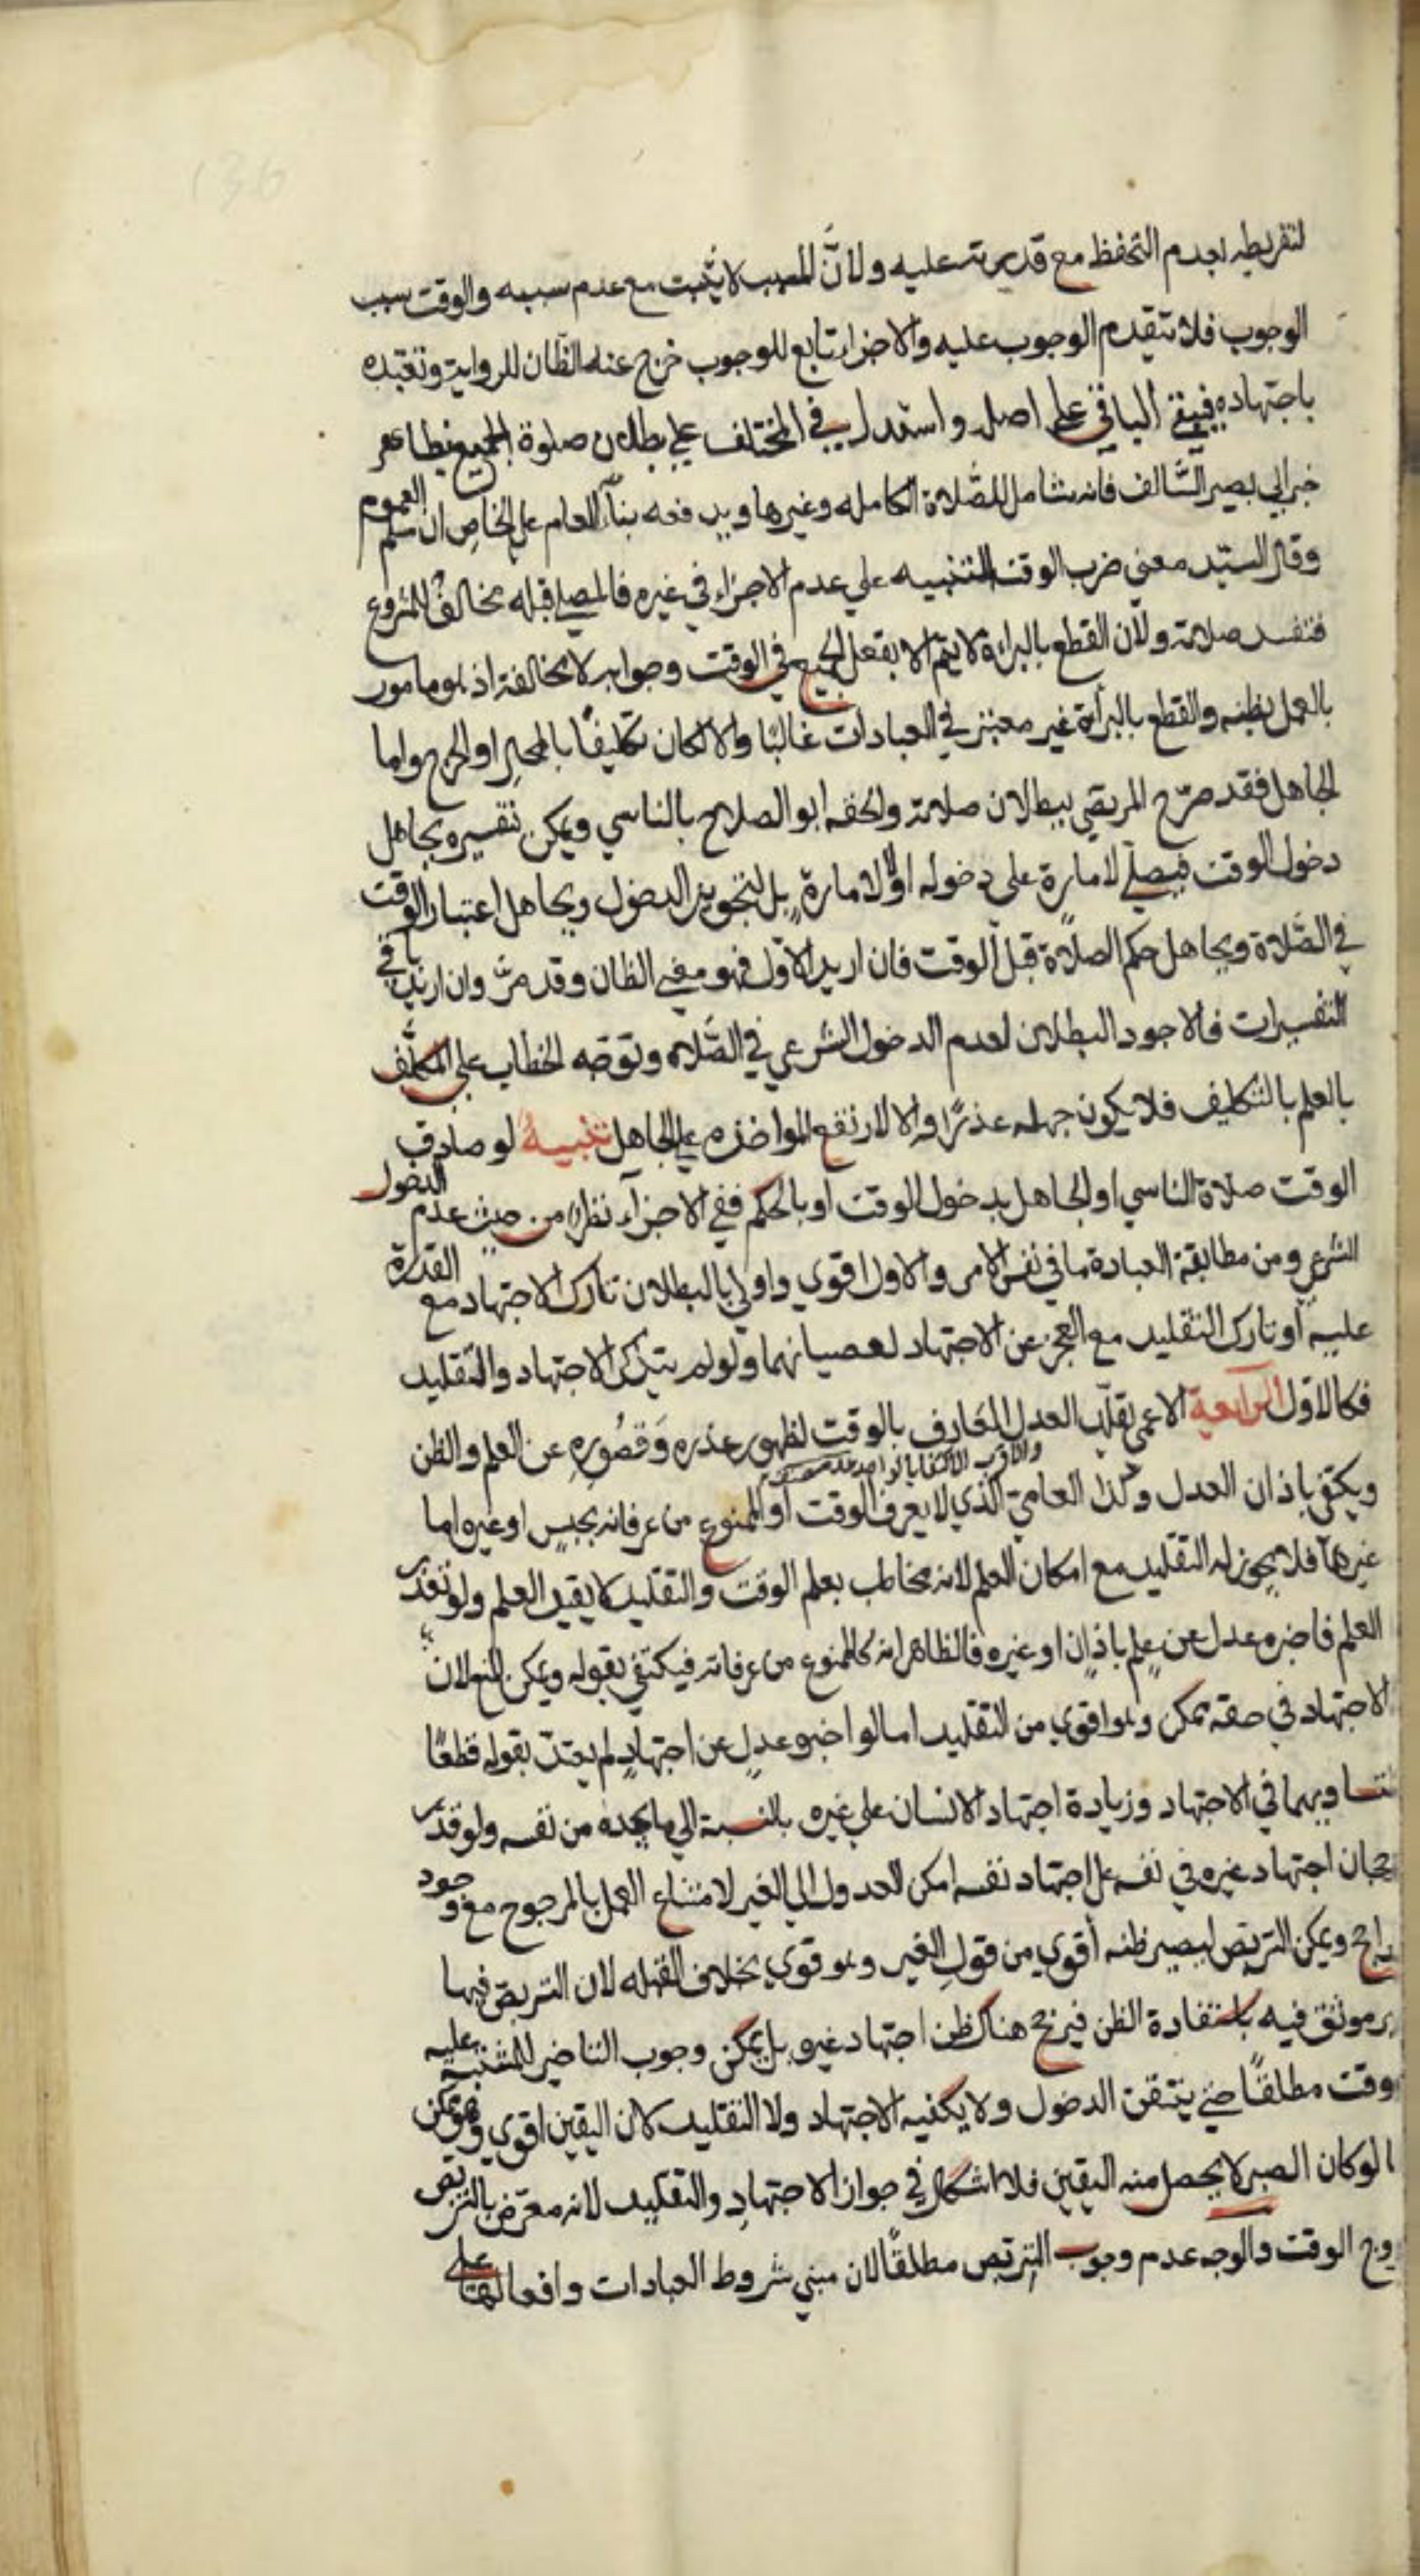 لتفريطه بعدم التحفظ مع قدرته عليه ولانّ المسبب لا يثبت مع عدم سببه والوقت سبب
الوجوب فلا يتقدم الوجوب عليه والاجزاء تابع للوجوب خرج عنه الظان للرواية وتعبده
باجتهاده فيبقي الباقي علي اصله واستدل في المختلف علي بطلان صلوة الجميع بظاهر
خبر ابي بصير السّالف فانه شامل للصّلاة الكامله وغيرها ويدفعه بنآء العام علي الخاص ان سلم العموم
وقال السيّد معني ضرب الوقت التنبيه علي عدم الاجزاء في غيره فالمصلي قبله مخالف للمشروع
فتفسد صلاته ولان القطع بالبراءة لا يتم الا بفعل الجميع في الوقت وجوابه لا مخالفة اذ هو مامور
بالعمل بظنه والقطع بالبرأة غير معتبر في العبادات غالبًا والا لكان تكليفًا بالمحال او الحرج واما
الجاهل فقد صرّح المرتضي ببطلان صلاته والحقه ابو الصلاح بالناسي ويمكن تفسيره بجاهل
دخول الوقت فيصلي لامارة علي دخوله او لا لامارة بل لتجويز الدخول وبجاهل اعتبار الوقت
في الصّلاة وبجاهل حكم الصلاة قبل الوقت فان اريد الاوّل فهو معني الظان وقد مرّ وان اريد باقي
التفسيرات فالاجود البطلان لعدم الدخول الشرعي في الصّلاة وتوجه الخطاب علي المكلّف
بالعلم بالتكليف فلا يكون جهله عذرًا والا لارتفع المواخذه علي الجاهل تنبيهٌ لو صادف
الوقت صلاة الناسي او الجاهل بدخول الوقت او بالحكم ففي الاجزآء نظر من حيث عدم الدخول
الشرعي ومن مطابقة العبادة ما في نفس الامر والاول اقوي واولي بالبطلان تارك الاجتهاد مع القدرة
عليه او تارك التقليد مع العجز عن الاجتهاد لعصيانهما ولو لم يترك الاجتهاد والتقليد
فكالاوّل الرابعة الاعمي يقلّد العدل العارف بالوقت لظهور عذره وقصوره عن العلم والظن
والاقرب الاكتفا بالواحد
ويكتفي باذان العدل وكذا العاميّ الذي لا يعرف الوقت او الممنوع من عرفانه بحبسٍ او غيره اما
غيرهما فلا يجوز له التقليد مع امكان العلم لانه مخاطب بعلم الوقت والتقليد لا يفيد العلم ولو تعذر
العلم فاخبره عدل عن علم باذان او غيره فالظاهر انه كالممنوع من عرفانه فيكتفي بقوله ويمكن المنع لان
الاجتهاد في حقه ممكن وهو اقوي من التقليد اما لو اخبره عدلٍ عن اجتهادٍ لم يعتدّ بقوله قطعًا
لتساويهما في الاجتهاد وزيادة اجتهاد الانسان علي غيره بالنسبة الي ما يجده من نفسه ولو قدر
رجحان اجتهاد غيره في نفسه علي اجتهاد نفسه امكن العدول الي الغير لامتناع العمل بالمرجوح مع وجود
الراجح ويمكن التربص ليصير ظنه أقوي من قول الغير وهو قوي بخلاف القبله لان التربص فيها
غير موثق فيه باستفادة الظن فيرجح هناك ظن اجتهاد غيره بل يمكن وجوب التاخير للمشتبه عليه
الوقت مطلقًا حتي يتيقن الدخول ولا يكفيه الاجتهاد ولا التقليد لان اليقين اقوي وهو ممكن
اما لو كان الصبر لا يحصل منه اليقين فلا اشكال في جواز الاجتهاد والتقليد لانه معرّض بالتربص
لخروج الوقت والوجه عدم وجوب التربص مطلقًا لان مبني شروط العبادات وافعالها علي